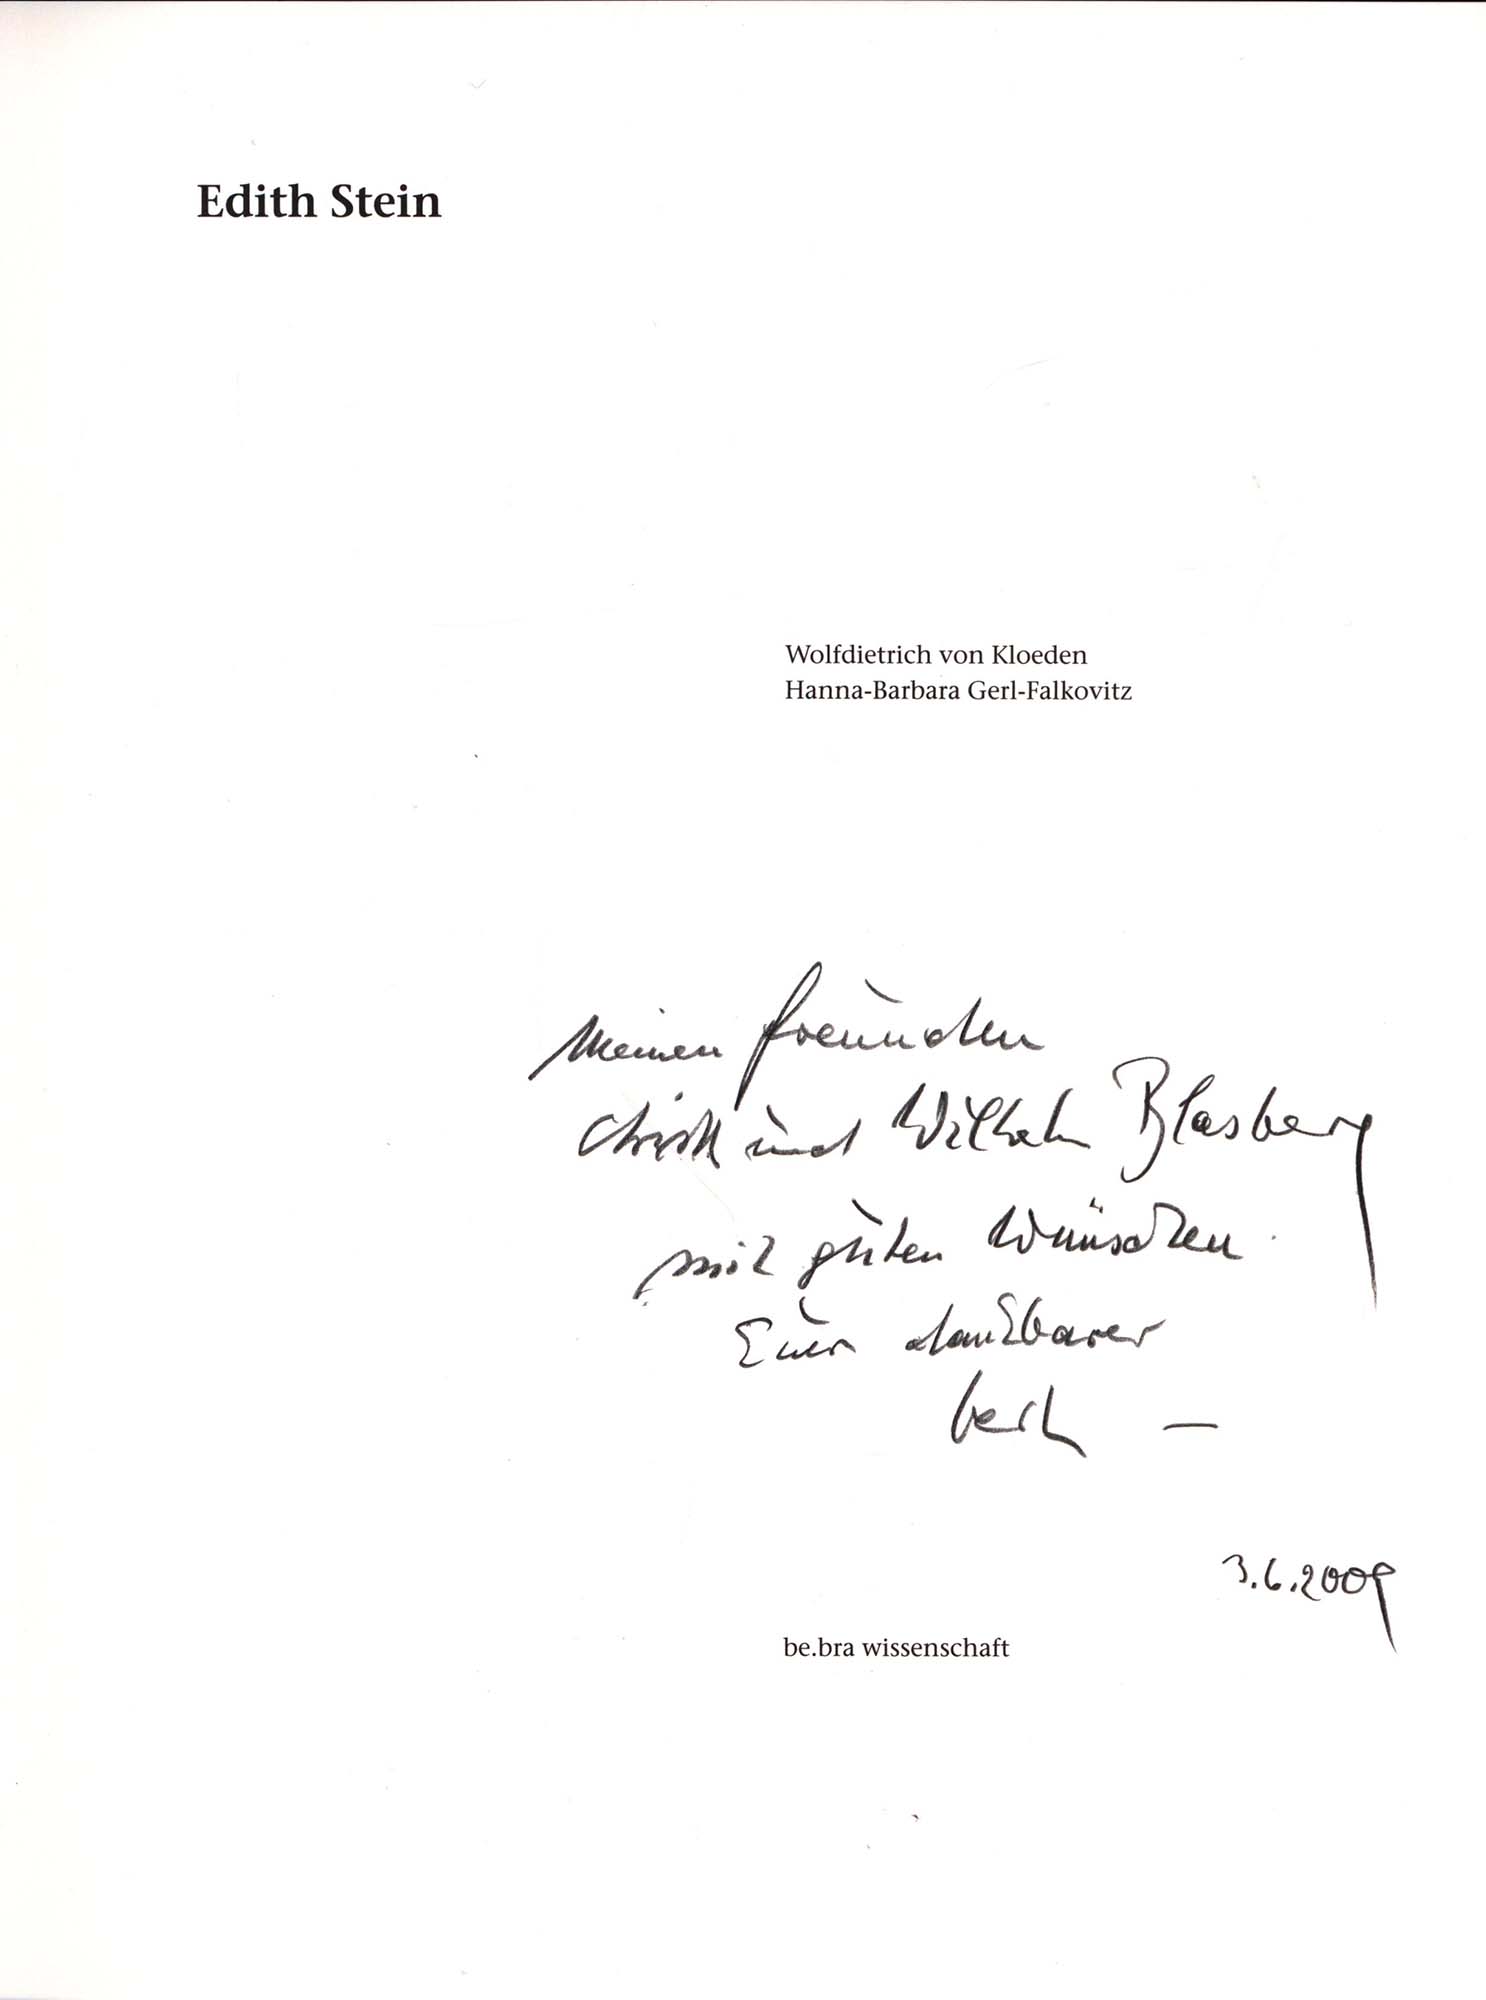 Edith Stein
Wolfdietrich von Kloeden
Hanna-Barbara Gerl-Falkovitz
Meinen Freunden
und Wilhelm Blasberg
mit guten Wünschen.
Euer dankbarer
3.6.2009
be.bra wissenschaft